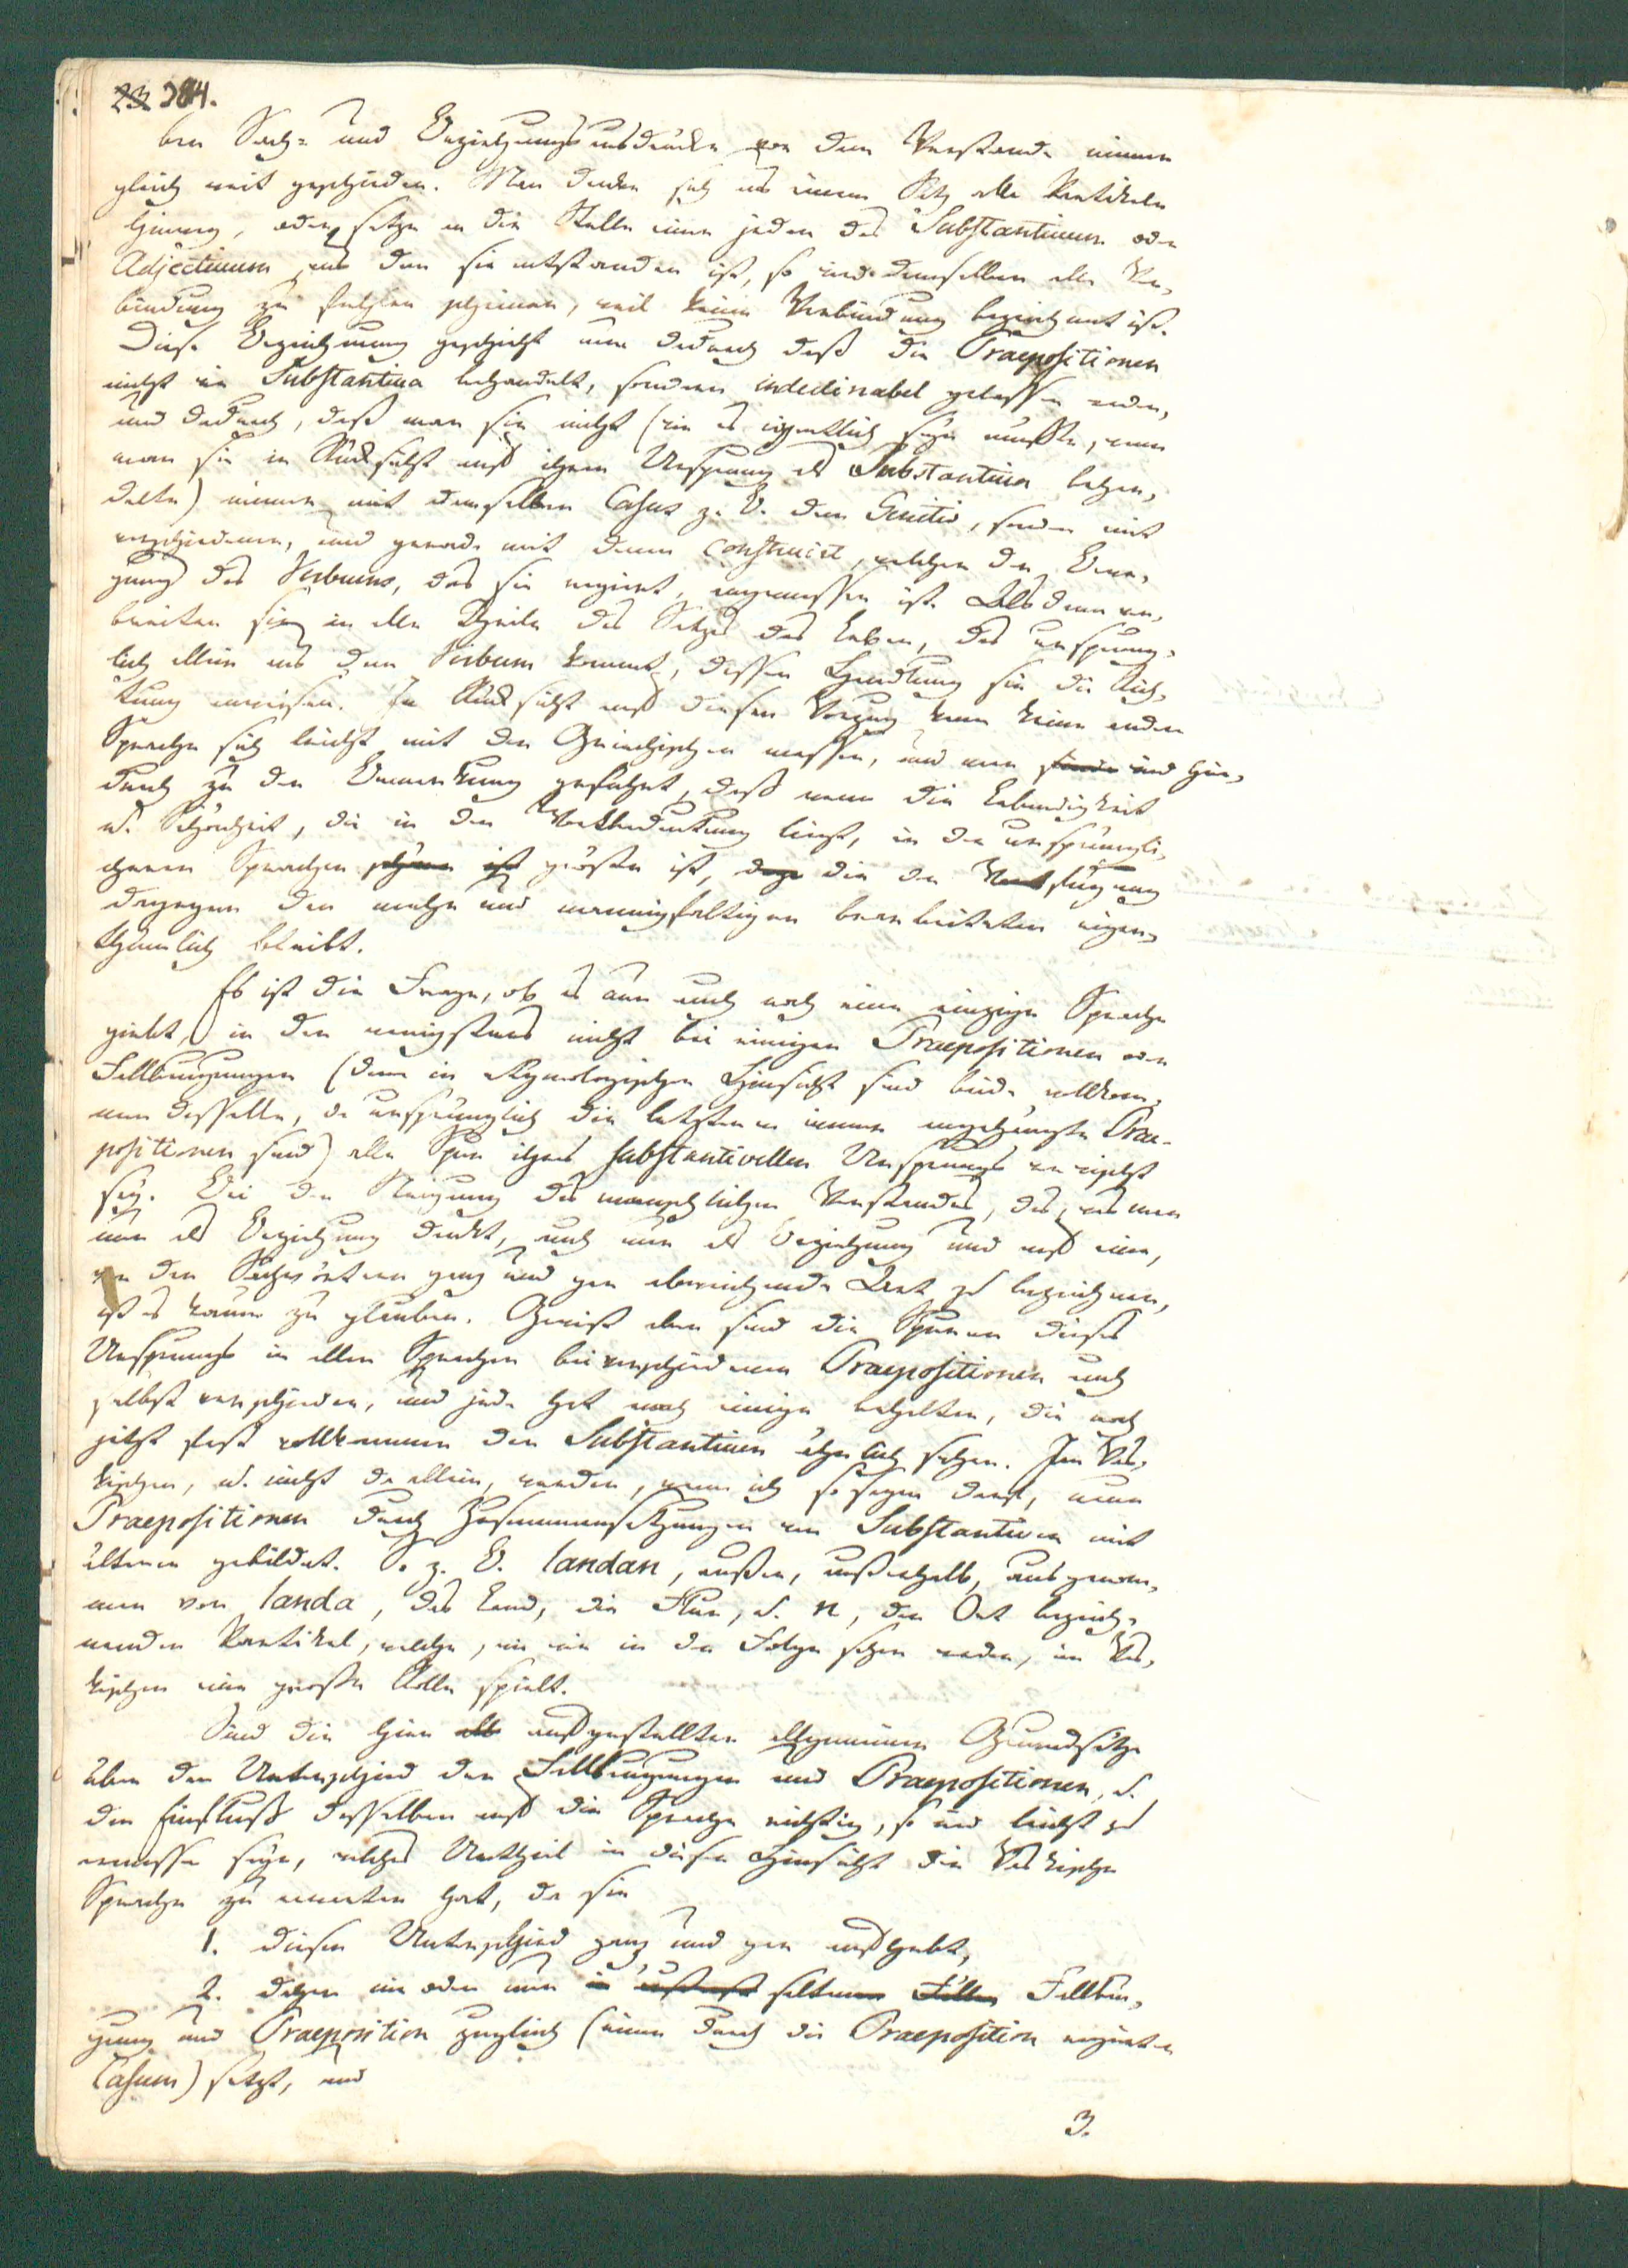 23 384.
ben Sach- und Beziehungsausdrücke vor dem Verstande immer
gleich weit geschieden. Man denke sich aus einem Satz alle Partikeln
hinweg, oder setze an die Stelle einer jeden das Substantivum oder
Adjectivum, aus dem sie entstanden ist, so wird demselben alle Ver-
bindung zu fehlen scheinen, weil keine Verbindung bezeichnet ist.
Diese Bezeichnung geschieht nun dadurch daß die Praepositionen
nicht wie Substantiva behandelt, sondern indeclinabel gelassen werden,
und dadurch, daß man sie nicht (wie es eigentlich seyn müsste, wenn
man sie in Rücksicht auf ihren Ursprung als Substantiva behan-
delte) immer mit demselben Casus z. B. dem Genitiv, sondern mit
verschiedenen, und gerade mit dem construirt, welcher der Bewe-
gung des Verbums, das sie regiert, angemessen ist. Alsdann ver-
breiten sie in alle Theile des Satzes das Leben, das ursprüng-
lich allein aus dem Verbum kommt, dessen Handlung sie die Rich-
tung anweisen. In Rücksicht auf diesen Vorzug kann keine andere
Sprache sich leicht mit der Griechischen messen, und man wird hie-
durch zu der Bemerkung geführt, daß wenn die Lebendigkeit
u. Schönheit, die in der Wortbedeutung liegt, in den ursprüngli-
cheren Sprachen größer ist, die der Wortfügung
dagegen den mehr und mannigfaltiger bearbeiteten eigen-
thümlich bleibt.
Es ist die Frage, ob es nun auch noch eine einzige Sprache
giebt, in der wenigstens nicht bei einigen Praepositionen oder
Fallbeugungen (denn in etymologischer Hinsicht sind beide vollkom-
men dasselbe, da ursprünglich die letzteren immer angehängte Prae-
positionen sind) alle Spur ihres substantivellen Ursprungs verwischt
sey. Bei der Neigung des menschlichen Verstandes, das, was man
nur als Beziehung denkt, auch nur als Beziehung und auf eine,
von den Sachwörtern ganz und gar abweichende Art zu bezeichnen,
ist es kaum zu glauben. Gewiß aber sind die Spuren dieses
Ursprungs in allen Sprachen bei verschiedenen Praepositionen auch
selbst verschieden, und jede hat noch einige behalten, die noch
jetzt fast vollkommen den Substantiven ähnlich sehen. Im Vas-
kischen, u. nicht da allein, werden, wenn ich so sagen darf, neue
Praepositionen durch Zusammensetzungen von Substantiven mit
älteren gebildet. So z. B. landan, außer, außerhalb, ausgenom-
men von landa, das Land, die Flur, u. n, der Ort bezeich-
nenden Partikel, welche, wie wir in der Folge sehen werden, im Vas-
kischen eine große Rolle spielt.
Sind die hier aufgestellten allgemeinen Grundsätze
über den Unterschied der Fallbeugungen und Praepositionen, u.
den Einfluß desselben auf die Sprache richtig, so wird leicht zu
ermessen seyn, welches Urtheil in dieser Hinsicht die Vaskische
Sprache zu erwarten hat, da sie
1. diesen Unterschied ganz und gar aufhebt,
2. daher nie oder nur in äußerst seltenen Fällen Fallbeu-
gung und Praeposition zugleich (einen durch die Praeposition regierten
Casum) setzt, und
3.